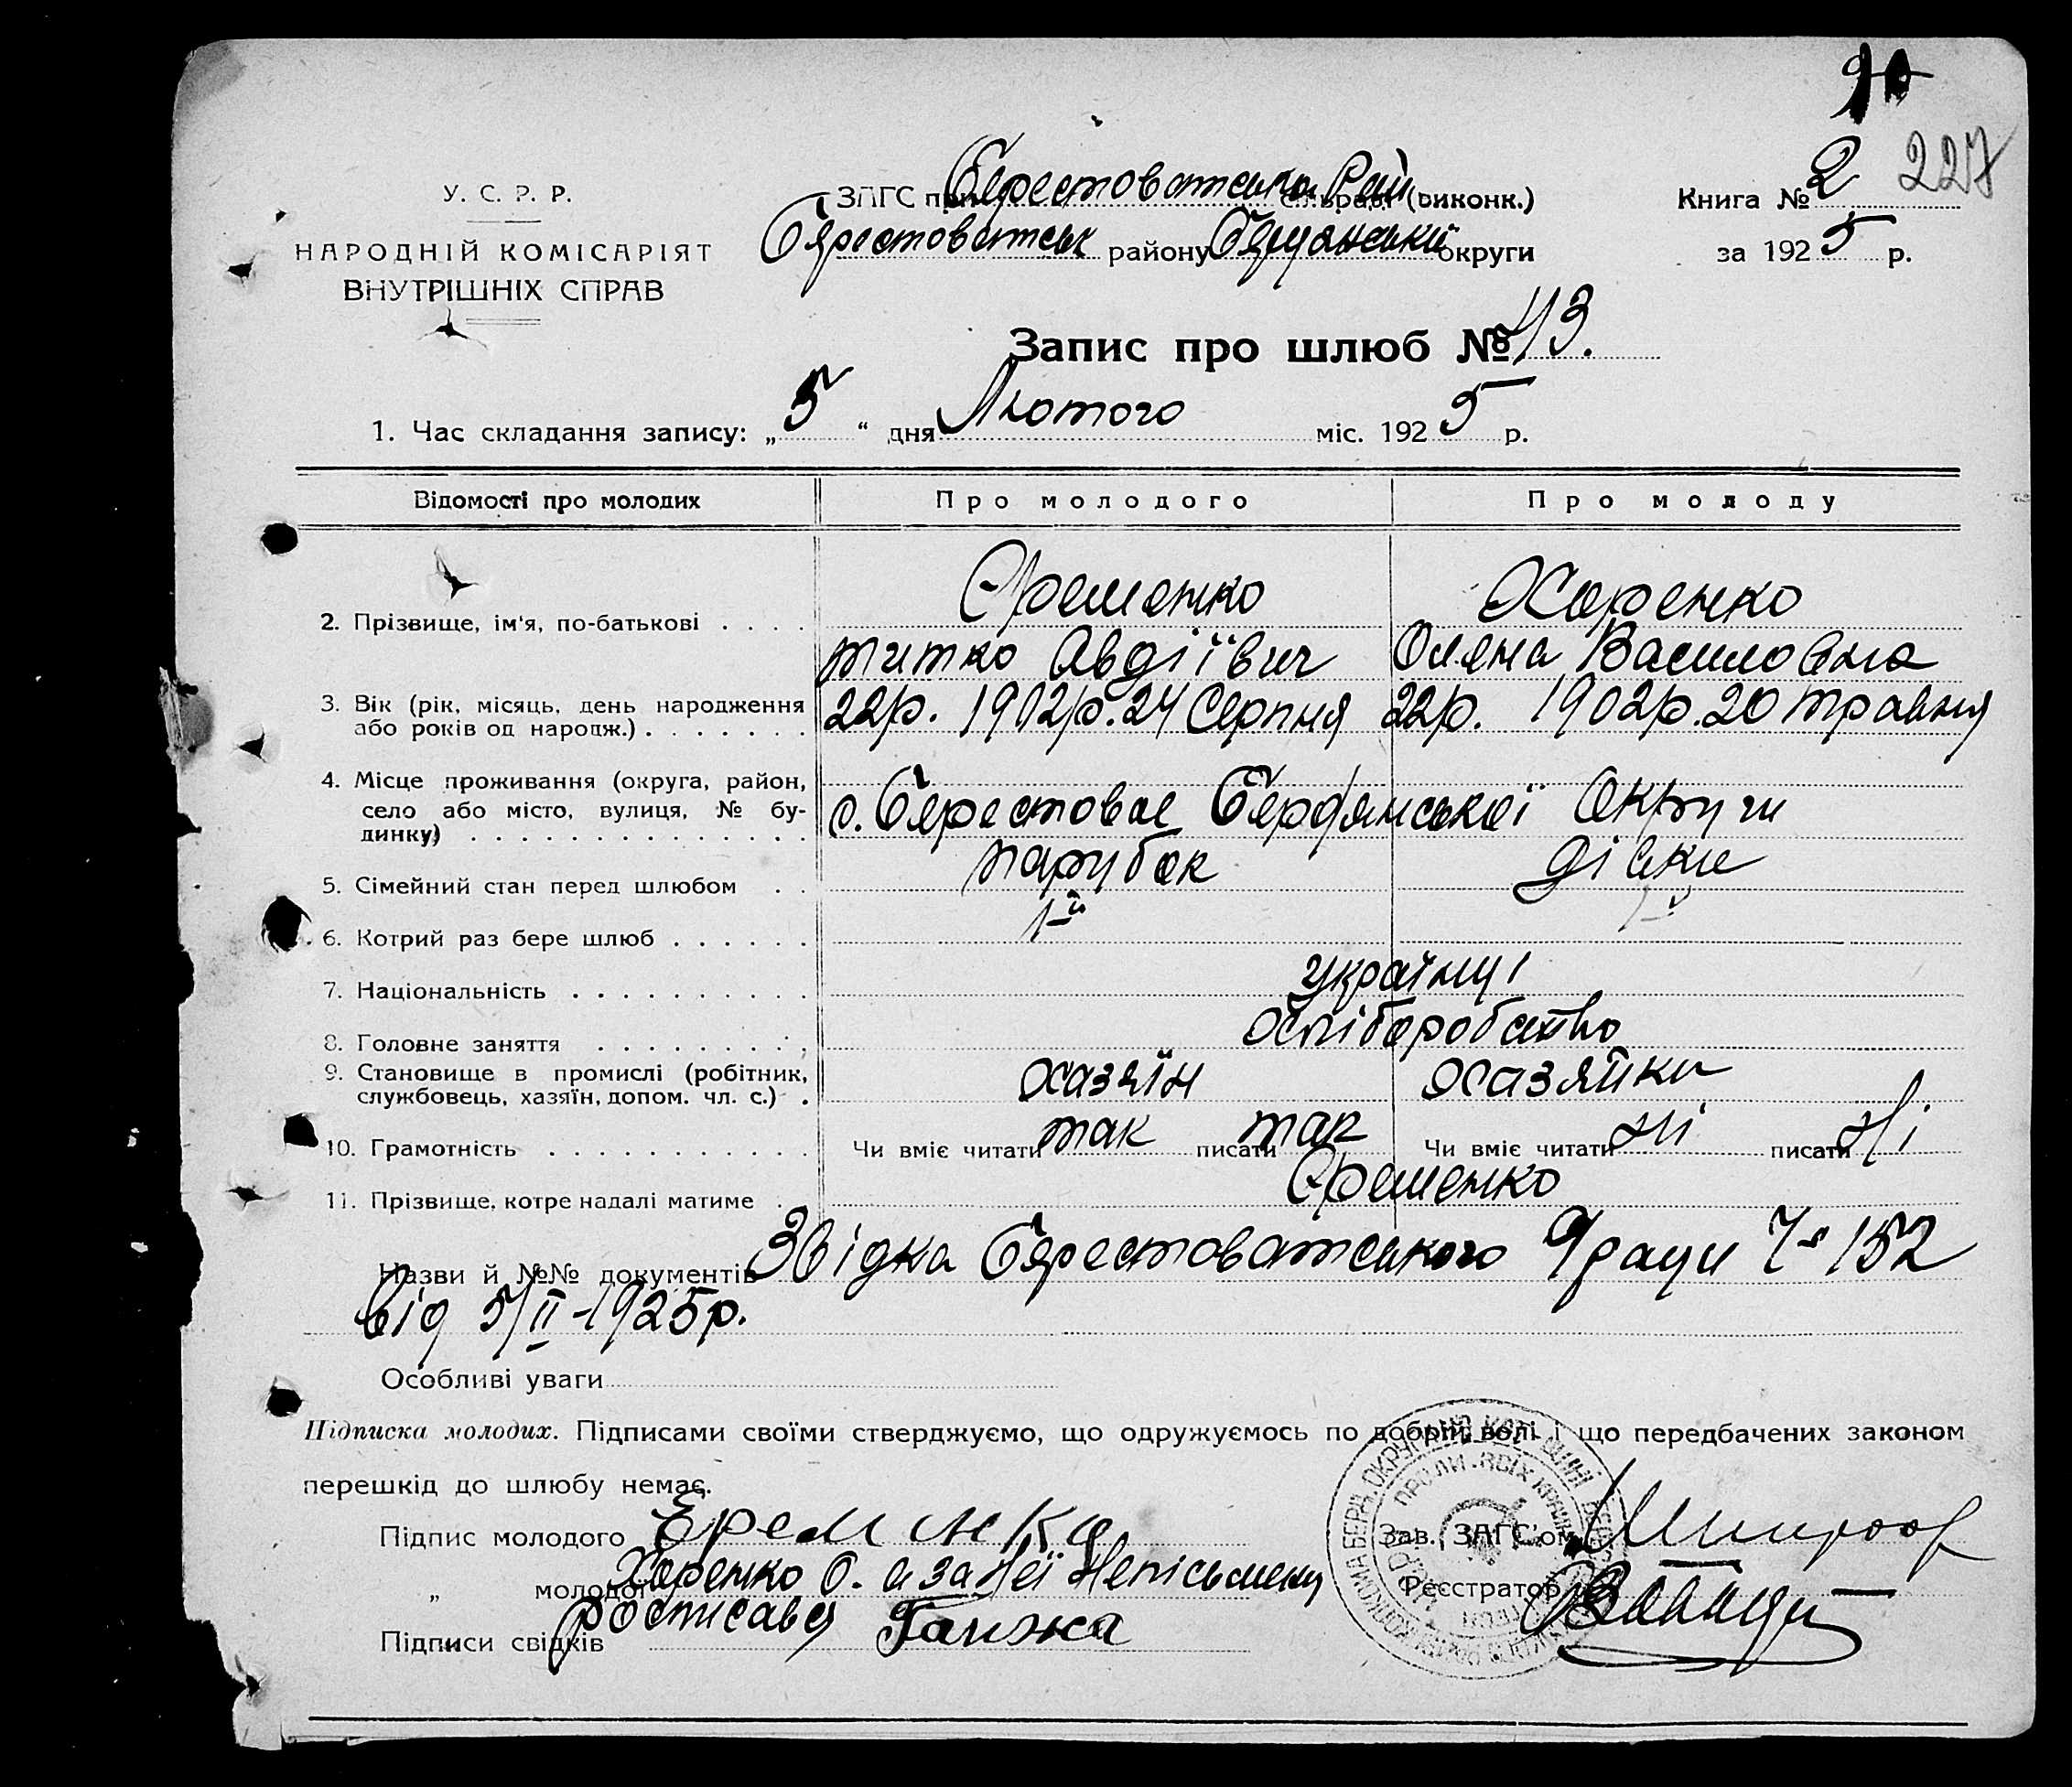 90
У. С. Р. Р.
НАРОДНІЙ КОМІСАРІЯТ
ВНУТРІШНІХ СПРАВ
ЗАГС при Берестоватська Рай (виконк.)
Берестоватськ району округи
Книга № 2 227
за 1925 р.
Запис про шлюб № 43.
1. Час складання запису: „5“ дня Лютого міс. 1925 р.
Відомості про молодих Про молодого Про молоду
2. Прізвище, ім'я, по-батькові . . . . Єременко Харенко
Титко Авдіївич Олена Василовна
3. Вік (рік, місяць, день народження або років од народж.) . . . . . . . 22р. 1902р. 24 Серпня 22р. 1902р. 20 травня
4. Місце проживання (округа, район, село або місто, вулиця, № будинку) . . . . . . . . . . . . . . с. Берестовае Бердянської Округи
5. Сімейний стан перед шлюбом . . парубок дівка
6. Котрий раз бере шлюб . . . . . . 1-й 1-й
7. Національність . . . . . . . . . . українці
8. Головне заняття . . . . . . . . . хліборобство
9. Становище в промислі (робітник, службовець, хазяїн, допом. чл. с.) . хазяїн хазяйка
10. Грамотність . . . . . . . . . . . Чи вміє читати так писати так Чи вміє читати ні писати ні
11. Прізвище, котре надалі матиме . Єременко
Назви й №№ документів Звідка Берестоватського ради 152
від 5/II-1925р.
Особливі уваги
Підписка молодих. Підписами своїми стверджуємо, що одружуємось по добрій волі і що передбачених законом
перешкід до шлюбу немає.
Підпис молодого Еременко
„ молодої Харенко О. а за неї неписьмену
росписавя Ганжа
Підписи свідків
Зав. ЗАГС'ом
Реєстратор